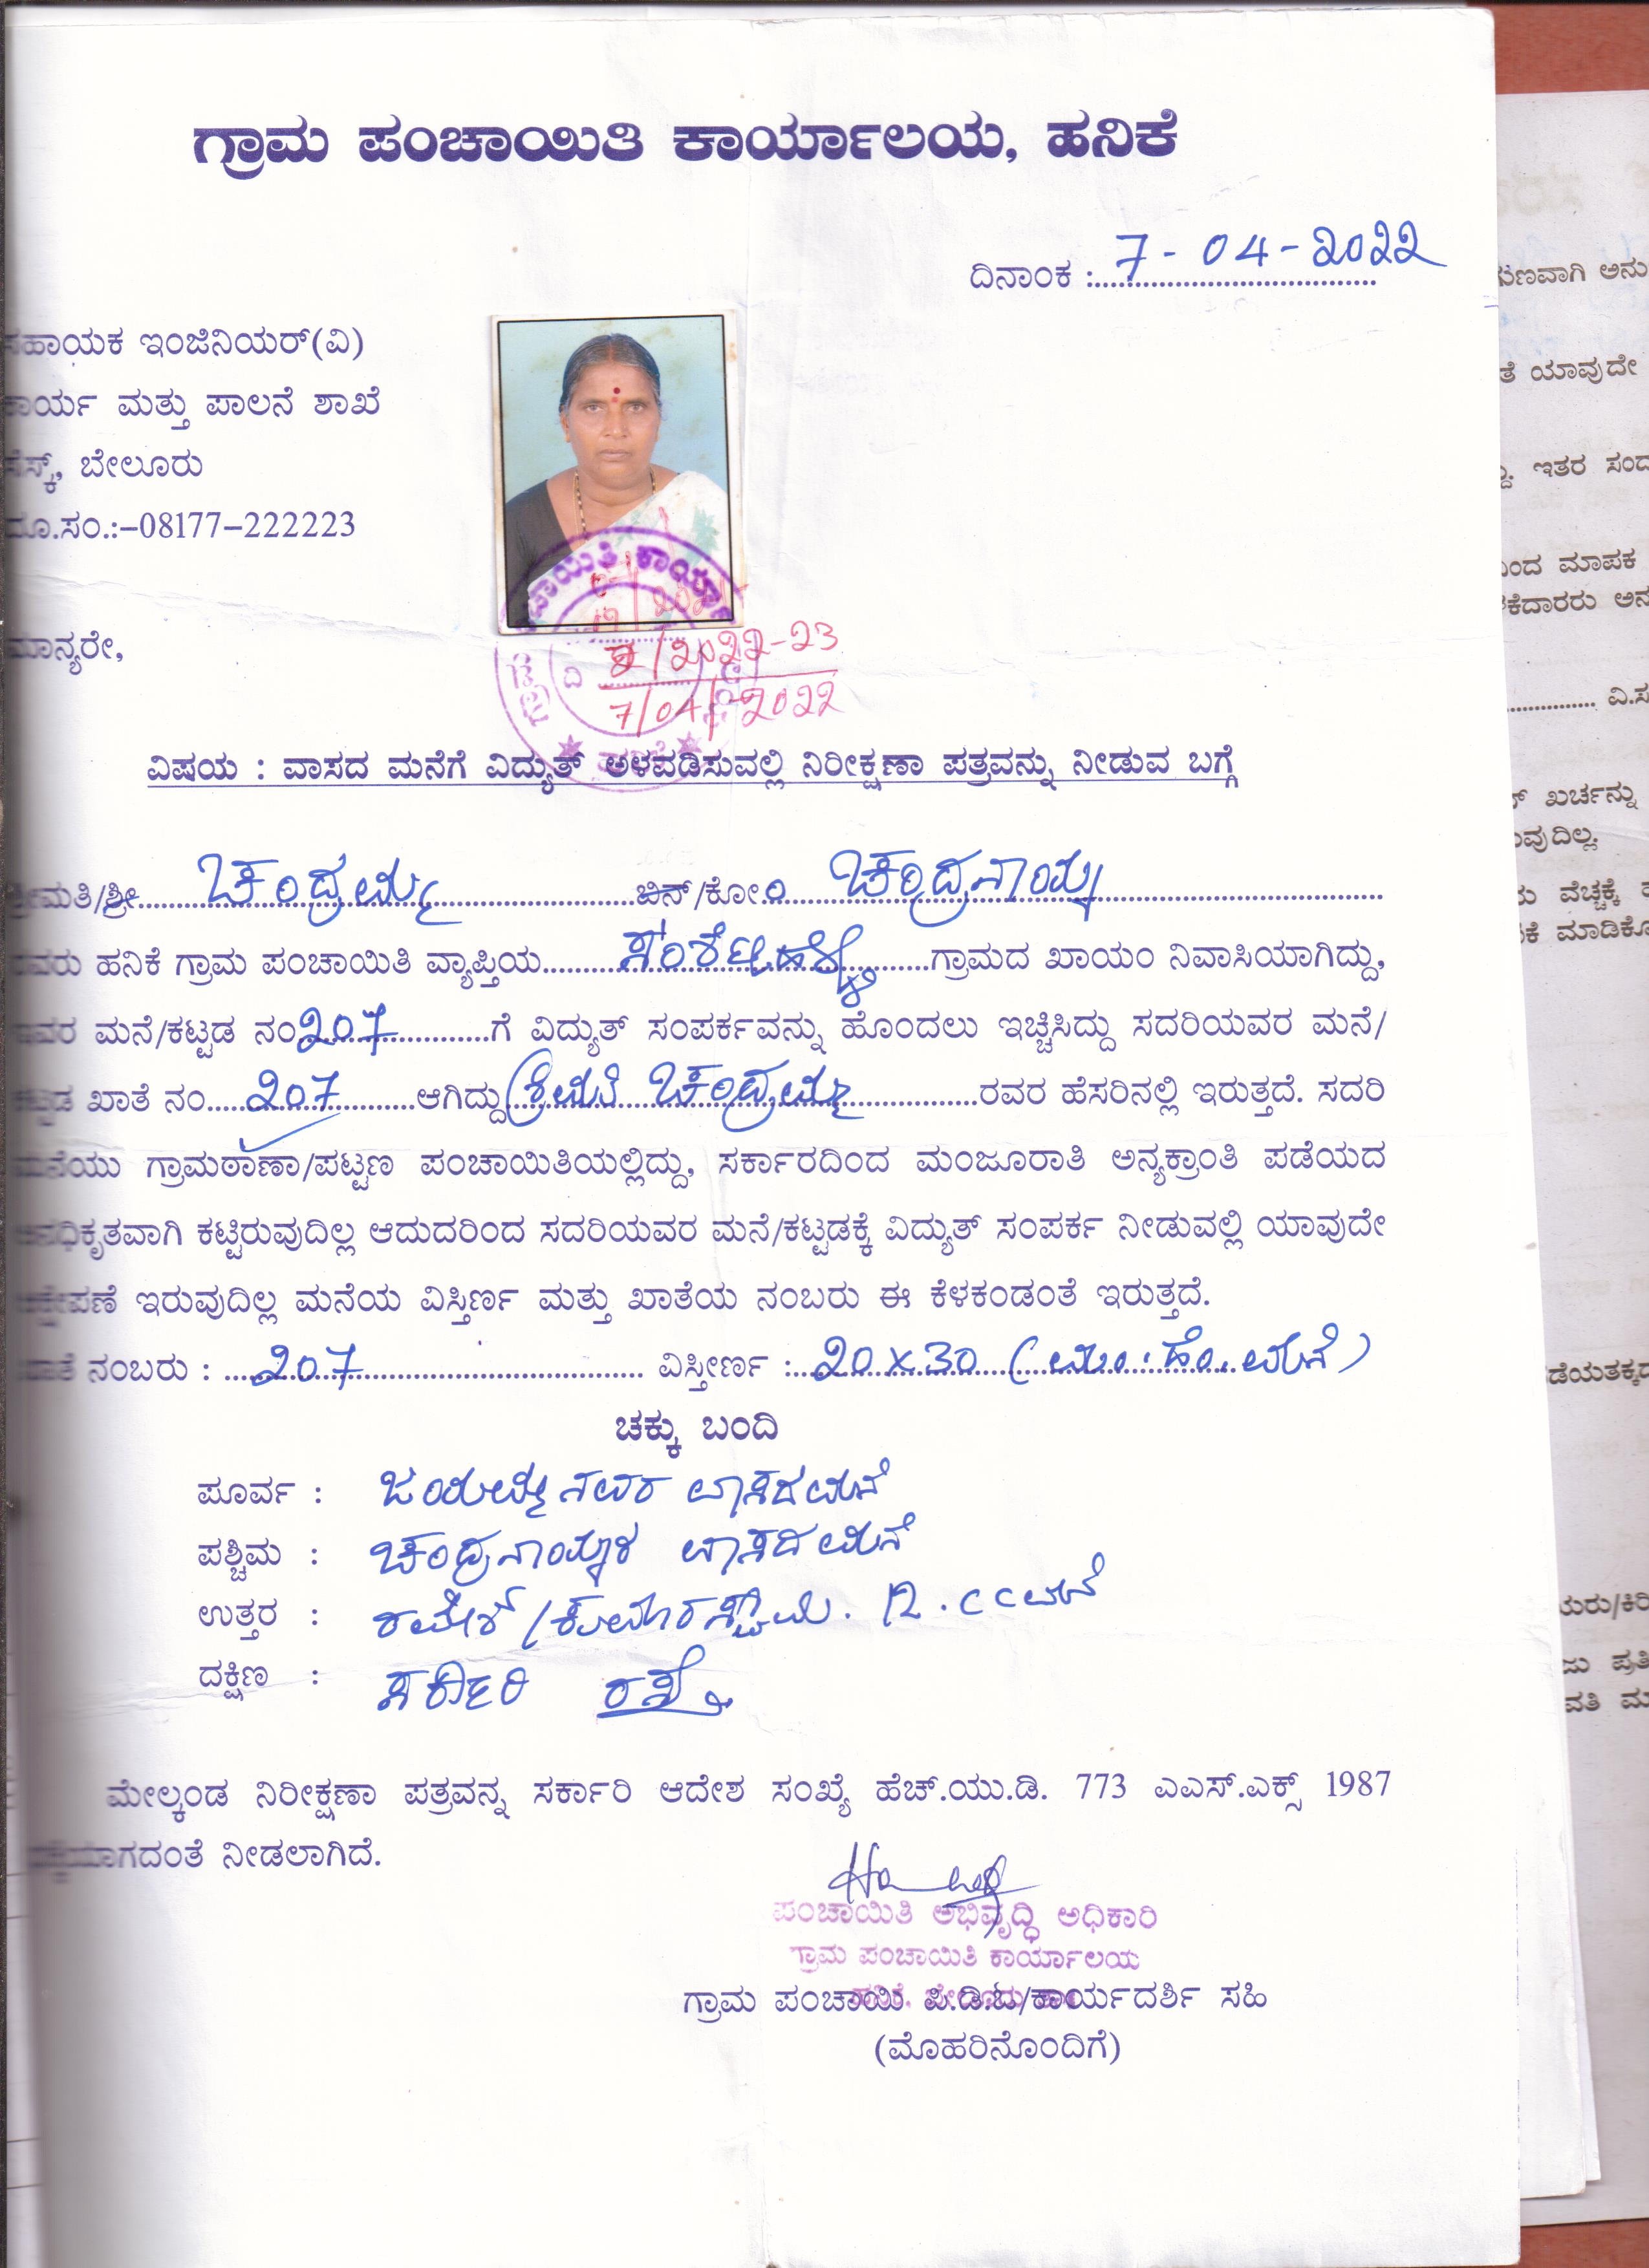 ಗ್ರಾಮ ಪಂಚಾಯಿತಿ ಕಾರ್ಯಾಲಯ, ಹನಿಕೆ
ದಿನಾಂಕ : 7-04-2022
ಸಹಾಯಕ ಇಂಜಿನಿಯರ್(ವಿ)
ಕಾರ್ಯ ಮತ್ತು ಪಾಲನೆ ಶಾಖೆ
ಬೇಲೂರು
ದೂ.ಸಂ.:-08177-222223
ಮಾನ್ಯರೇ,
2022-23
7/04/2022
ವಿಷಯ : ವಾಸದ ಮನೆಗೆ ವಿದ್ಯುತ್ ಅಳವಡಿಸುವಲ್ಲಿ ನಿರೀಕ್ಷಣಾ ಪತ್ರವನ್ನು ನೀಡುವ ಬಗ್ಗೆ
ಶ್ರೀಮತಿ/ಶ್ರೀ ಚಂದ್ರಮ್ಮ ಬಿನ್/ಕೋಂ ಚಂದ್ರನಾಯ್ಕ
ರವರು ಹನಿಕೆ ಗ್ರಾಮ ಪಂಚಾಯಿತಿ ವ್ಯಾಪ್ತಿಯ ಗ್ರಾಮದ ಖಾಯಂ ನಿವಾಸಿಯಾಗಿದ್ದು,
ಇವರ ಮನೆ/ಕಟ್ಟಡ ನಂ 207 ಗೆ ವಿದ್ಯುತ್ ಸಂಪರ್ಕವನ್ನು ಹೊಂದಲು ಇಚ್ಚಿಸಿದ್ದು ಸದರಿಯವರ ಮನೆ/
ಕಟ್ಟಡ ಖಾತೆ ನಂ 207 ಆಗಿದ್ದು ಶ್ರೀಮತಿ ಚಂದ್ರಮ್ಮ ರವರ ಹೆಸರಿನಲ್ಲಿ ಇರುತ್ತದೆ. ಸದರಿ
ಮನೆಯು ಗ್ರಾಮಠಾಣಾ/ಪಟ್ಟಣ ಪಂಚಾಯಿತಿಯಲ್ಲಿದ್ದು, ಸರ್ಕಾರದಿಂದ ಮಂಜೂರಾತಿ ಅನ್ಯಕ್ರಾಂತಿ ಪಡೆಯದ
ಅನಧಿಕೃತವಾಗಿ ಕಟ್ಟಿರುವುದಿಲ್ಲ ಆದುದರಿಂದ ಸದರಿಯವರ ಮನೆ/ಕಟ್ಟಡಕ್ಕೆ ವಿದ್ಯುತ್ ಸಂಪರ್ಕ ನೀಡುವಲ್ಲಿ ಯಾವುದೇ
ಆಕ್ಷೇಪಣೆ ಇರುವುದಿಲ್ಲ ಮನೆಯ ವಿಸ್ತಿರ್ಣ ಮತ್ತು ಖಾತೆಯ ನಂಬರು ಈ ಕೆಳಕಂಡಂತೆ ಇರುತ್ತದೆ.
ಖಾತೆ ನಂಬರು : 207 ವಿಸ್ತೀರ್ಣ : 20x30 (ಮಂ.ಹೆಂ.ಮನೆ)
ಚಕ್ಕು ಬಂದಿ
ಪೂರ್ವ : ಜಯಮ್ಮನವರ ವಾಸದಮನೆ
ಪಶ್ಚಿಮ : ಚಂದ್ರನಾಯ್ಕರ ವಾಸದಮನೆ
ಉತ್ತರ : ರಮೇಶ್/ಕುಮಾರಸ್ವಾಮಿ. R.CC ಮನೆ
ದಕ್ಷಿಣ : ಸರ್ಕಾರಿ ರಸ್ತೆ
ಮೇಲ್ಕಂಡ ನಿರೀಕ್ಷಣಾ ಪತ್ರವನ್ನ ಸರ್ಕಾರಿ ಆದೇಶ ಸಂಖ್ಯೆ ಹೆಚ್.ಯು.ಡಿ. 773 ಎಎಸ್.ಎಕ್ಸ್ 1987
ನೀಡಲಾಗಿದೆ.
ಪಂಚಾಯಿತಿ ಅಭಿವೃದ್ಧಿ ಅಧಿಕಾರಿ
ಗ್ರಾಮ ಪಂಚಾಯಿತಿ ಕಾರ್ಯಾಲಯ
ಗ್ರಾಮ ಪಂಚಾಯಿ ಪಿ.ಡಿ.ಓ/ಕಾರ್ಯದರ್ಶಿ ಸಹಿ
(ಮೊಹರಿನೊಂದಿಗೆ)